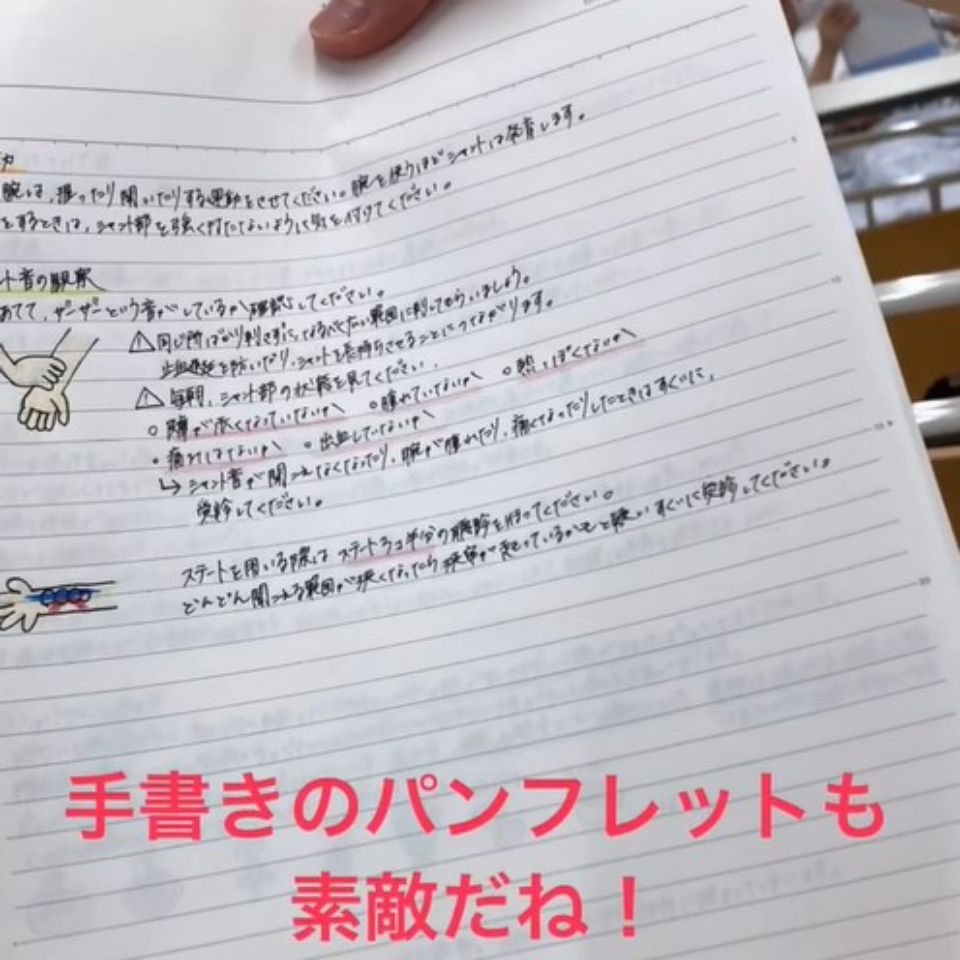 腕は、握ったり開いたりする運動をさせてください。腕を使うほどシャントは発育します。
をするときは、シャント部を強く打たないように気を付けてください。
ント音の観察
あてて、ザーザーという音がしているか確認してください。
⚠同じ所ばかり刺さずに、なるべく広い範囲に刺してもらいましょう。
出血遅延を防いだり、シャントを長持ちさせることにつながります。
⚠毎朝、シャント部の状態を見てください。
○腕が赤くなっていないか ○腫れていないか ○熱っぽくないか
○痛みはないか ○出血してないか
↳シャント音が聞こえなくなったり、腕が腫れたり、痛くなったりしたときはすぐに、
受診してください。
ステートを用いる際は ステートラ 半分の聴診を行ってください。
どんどん聞こえる範囲が狭くなったら狭窄が起こっているかも すぐに受診してください。
手書きのパンフレットも
素敵だね！